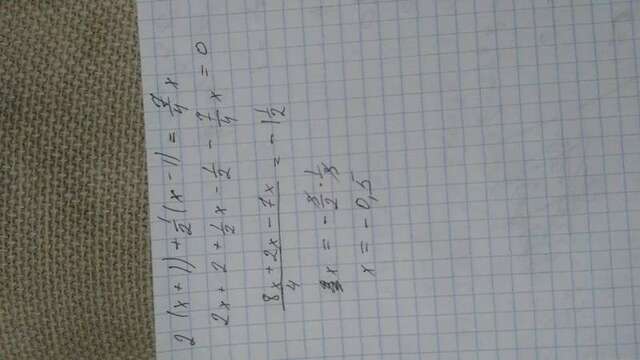 2 (x+1) + 1/2 (x-1) = 7/4 x
2x + 2 + 1/2 x - 1/2 - 7/4 x = 0
8x + 2x - 7x / 4 = - 1 1/2
x = - 3/2 · 1/3
x = - 0,5